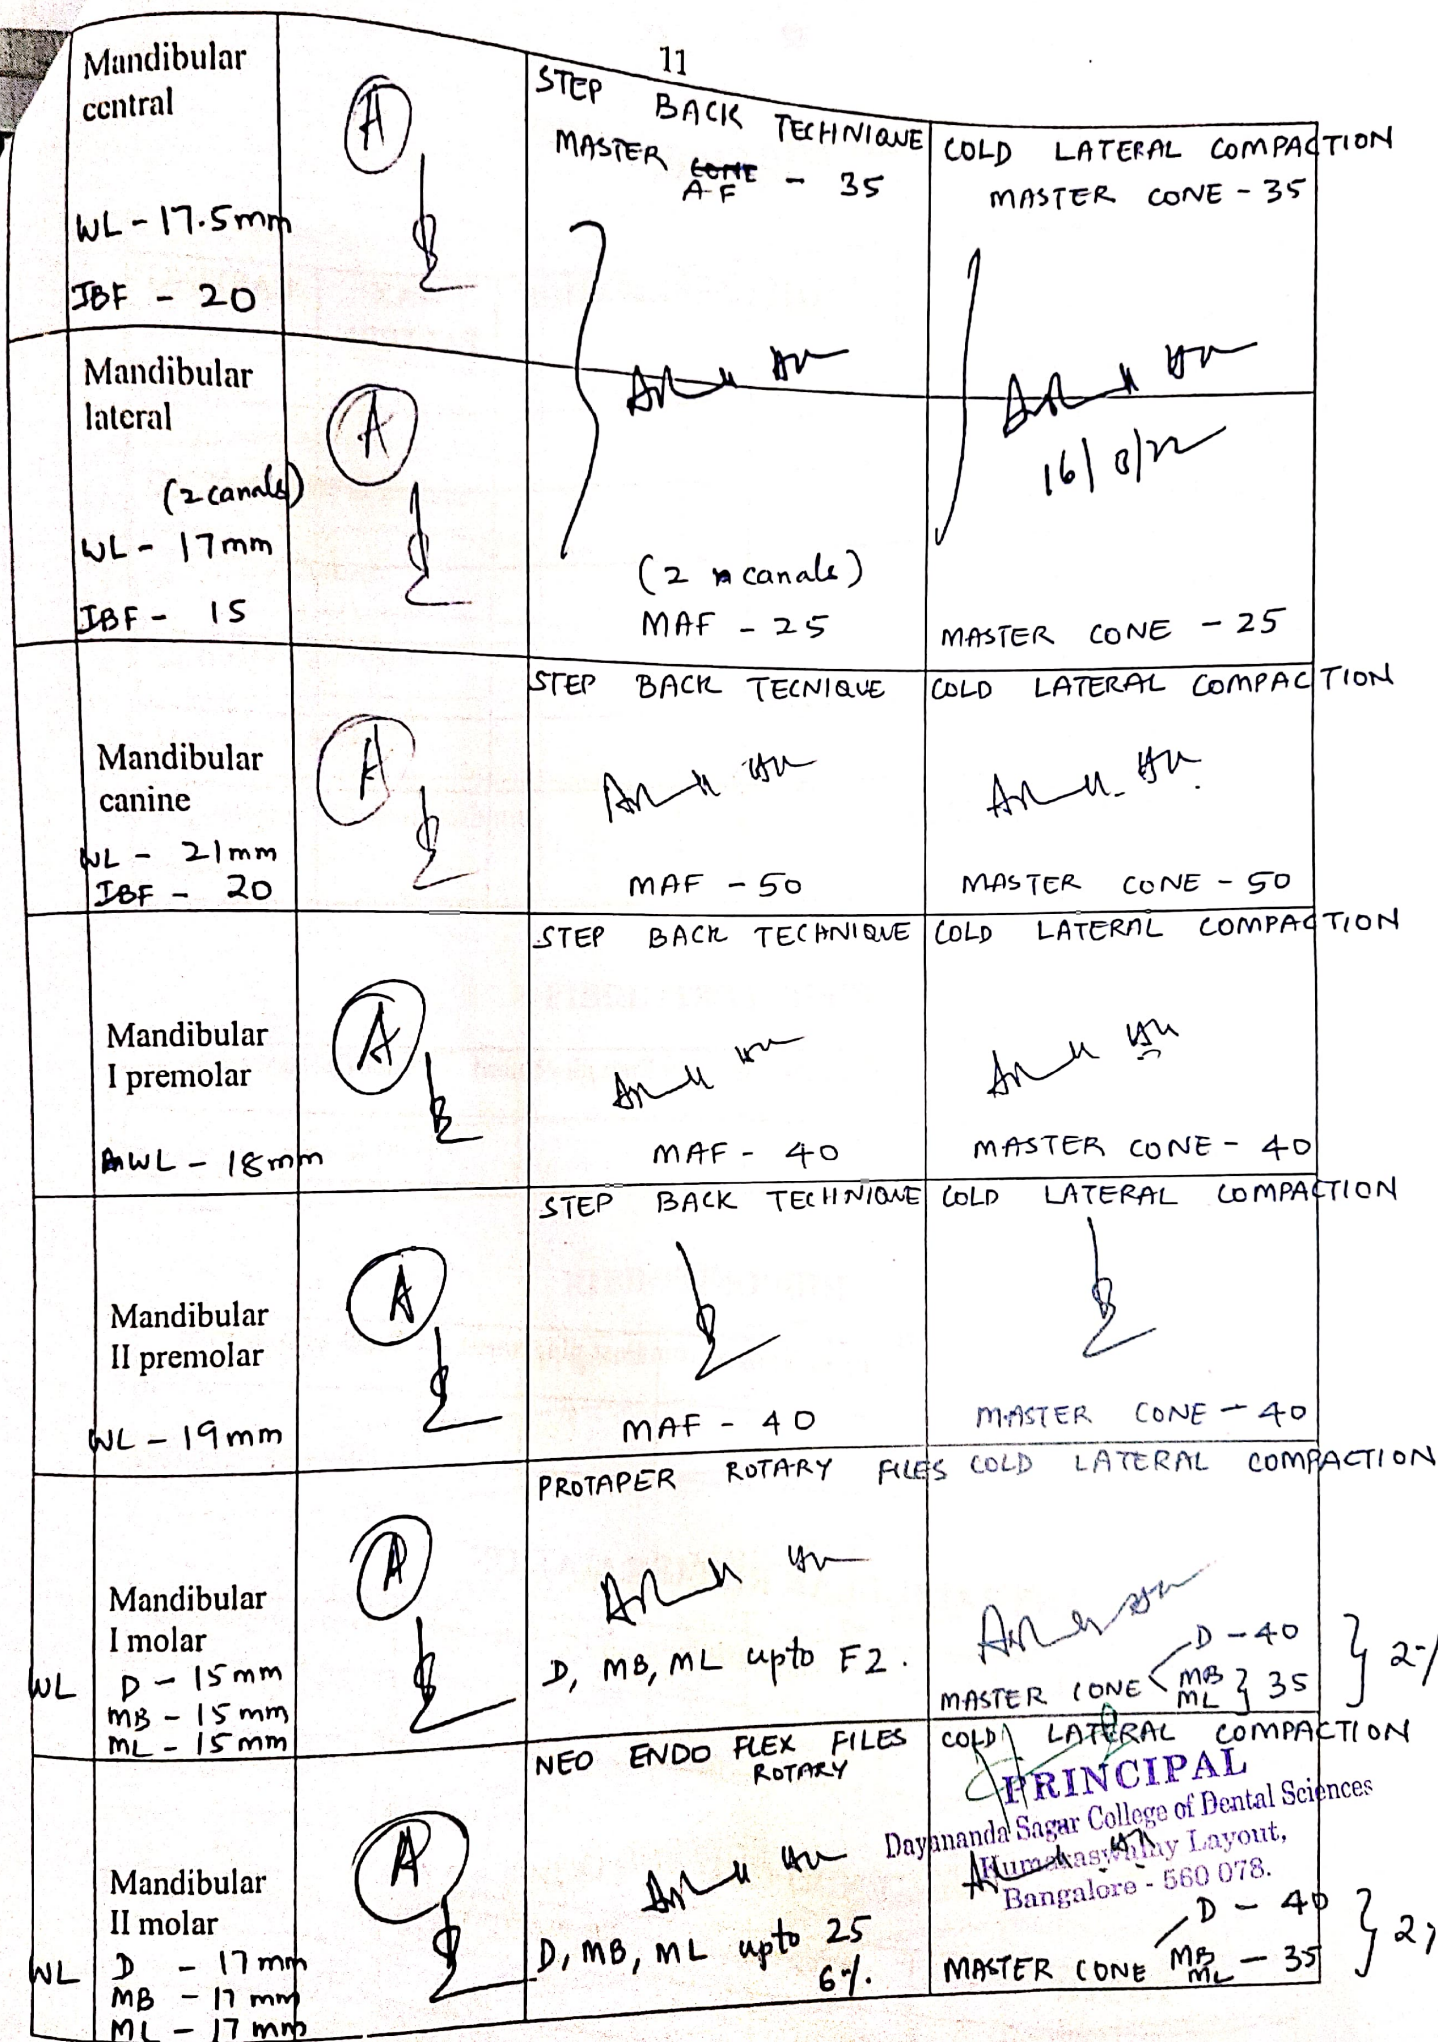 11
Mandibular
central
WL - 17.5mm
IBF - 20
A
STEP BACK TECHNIQUE
MASTER CONE
AF - 35
COLD LATERAL COMPACTION
MASTER CONE - 35
Mandibular
lateral
(2 canals)
WL - 17mm
IBF - 15
A
(2 canals)
MAF - 25
MASTER CONE - 25
Mandibular
canine
WL - 21mm
IBF - 20
A
STEP BACK TECNIQUE
MAF - 50
COLD LATERAL COMPACTION
MASTER CONE - 50
Mandibular
I premolar
WL - 18mm
A
STEP BACK TECHNIQUE
MAF - 40
COLD LATERAL COMPACTION
MASTER CONE - 40
Mandibular
II premolar
WL - 19mm
A
STEP BACK TECHNIQUE
MAF - 40
COLD LATERAL COMPACTION
MASTER CONE - 40
Mandibular
I molar
WL D - 15mm
MB - 15mm
ML - 15mm
A
PROTAPER ROTARY FILES
D, MB, ML upto F2.
COLD LATERAL COMPACTION
D - 40
MASTER CONE MB ML } 35 } 2%
Mandibular
II molar
WL D - 17mm
MB - 17mm
ML - 17mm
A
NEO ENDO FLEX FILES
ROTARY
D, MB, ML upto 25
6%.
COLD LATERAL COMPACTION
PRINCIPAL
Dayananda Sagar College of Dental Sciences
Kumaraswamy Layout,
Bangalore - 560 078.
D - 40
MASTER CONE MB ML - 35 } 2